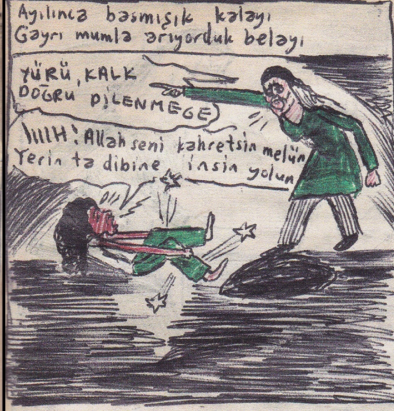 Ayılınca basmışık kalayı
Gayrı mumla arıyorduk belayı
YÜRÜ, KALK
DOĞRU DİLENMEGE
IIIIH! Allah seni kahretsin melün
Yerin ta dibine insin yolun